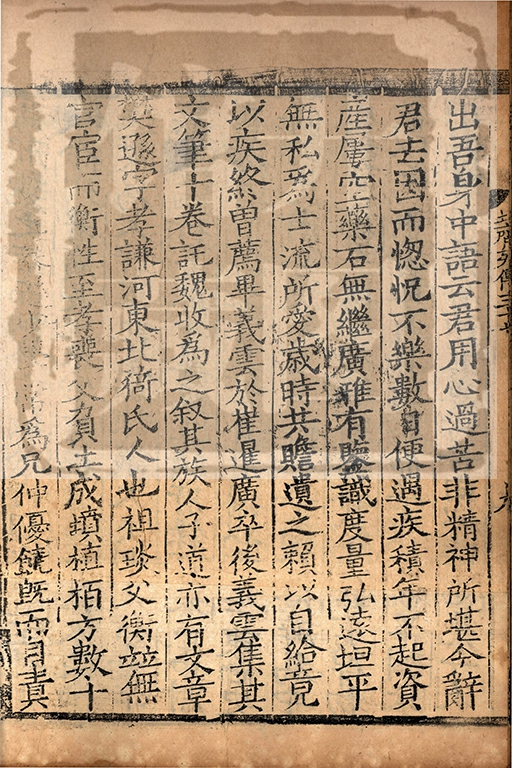 出吾身中語云君用心過苦非精神所堪今辭
君去因而惚怳不樂數日便遇疾積年不起資
產屢空藥石無繼廣雅有鑒識度量弘遠坦平
無私為士流所愛歳時共贍遺之賴以自給竟
以疾終曽薦畢義雲於崔暹廣卒後義雲集其
文筆十卷託魏收為之叙其族人子道亦有文章
樊遜字孝謙河東北猗氏人也祖琰父衡並無
官宦而衡性至孝喪父負土成墳植栢方數十
常為兄仲優饒旣而自責